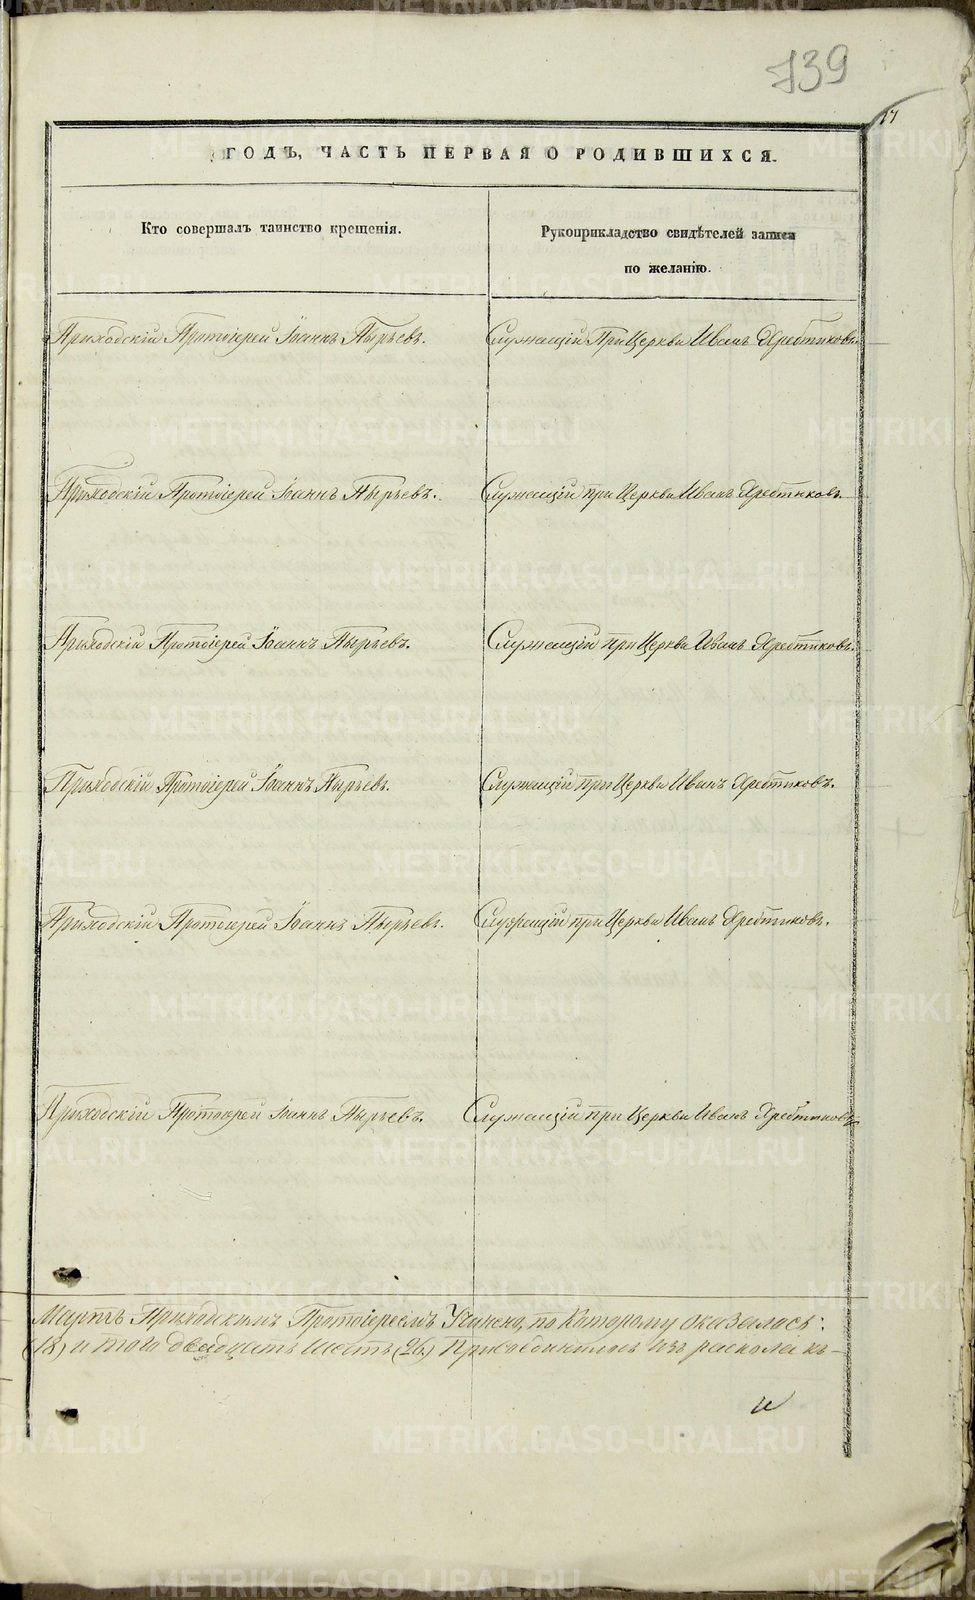 139
17
ГОДЪ, ЧАСТЬ ПЕРВАЯ О РОДИВШИХСЯ.
Кто совершалъ таинство крещенія.
Рукоприкладство свидѣтелей записи
по желанію.
Приходскій Протоіерей Іоаннъ Пырьевъ.
Служащій при Церкви Иванъ Хребтиковъ.
Приходскій Протоіерей Іоаннъ Пырьевъ.
Служащій при Церкви Иванъ Хребтиковъ.
Приходскій Протоіерей Іоаннъ Пырьевъ.
Служащій при Церкви Иванъ Хребтиковъ.
Приходскій Протоіерей Іоаннъ Пырьевъ.
Служащій при Церкви Иванъ Хребтиковъ.
Приходскій Протоіерей Іоаннъ Пырьевъ.
Служащій при Церкви Иванъ Хребтиковъ.
Приходскій Протоіерей Іоаннъ Пырьевъ.
Служащій при Церкви Иванъ Хребтиковъ.
Мартъ Приходскимъ Протоіереемъ Учинено, по Которому оказалось:
(18) и того двадцать шесть (26) Присоединилось изъ раскола къ
METRIKI.GASO-URAL.RU